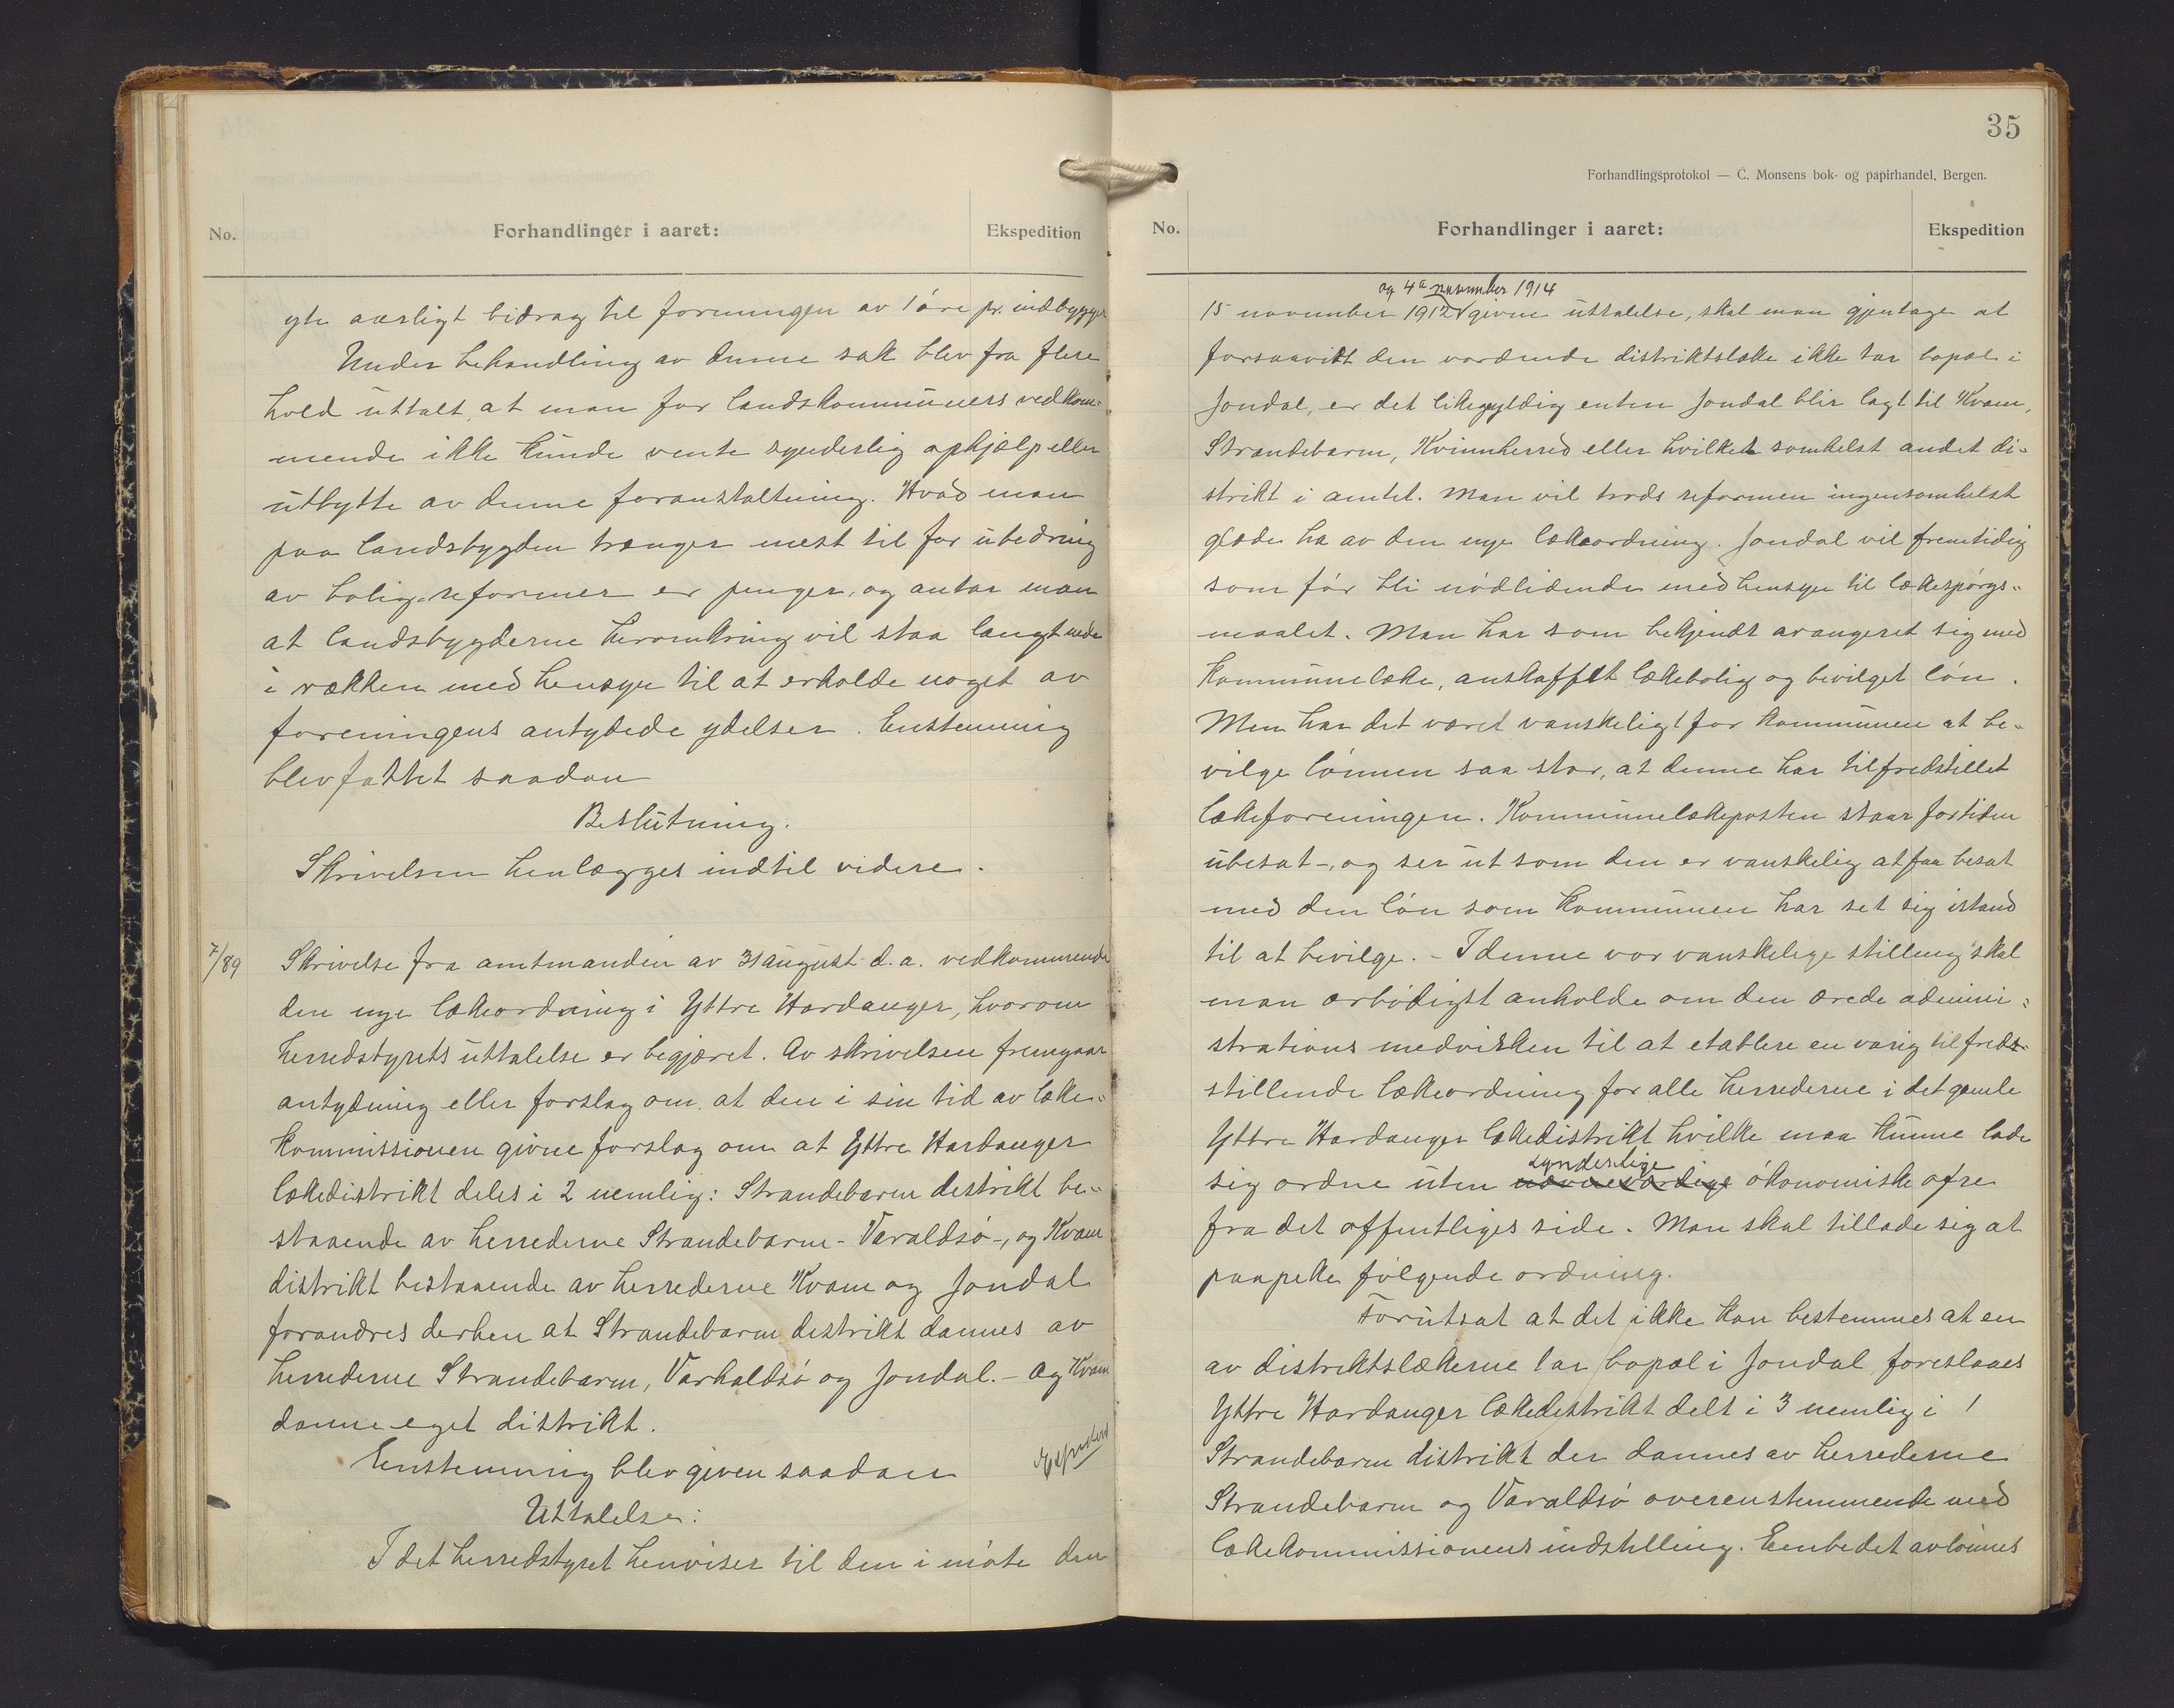 No.
Forhandlinger i aaret:
Ekspedition
yte aarligt bidrag til foreningen av 1 øre pr. indbygger
Under behandling av denne sak blev fra flere
hold uttalt, at man for landskommuners vedkom-
mende ikke kunde vente synderlig ophjælp eller
utbytte av denne foranstaltning. Hvad man
paa landsbygden trænger mest til for ubedring
av bolig-reformer er penger, og antar man
at landsbygderne heromkring vil staa langt nede
i rækken med hensyn til at erholde noget av
foreningens antydede ydelser. Enstemmig
blev fattet saadan
Beslutning.
Skrivelsen henlægges indtil videre.
7/89
Skrivelse fra amtmanden av 31 august d.a. vedkommende
den nye lækeordning i Yttre Hardanger, hvorom
herredstyrets uttalelse er begjæret. Av skrivelsen fremgaar
antydning eller forslag om at den i sin tid av læke-
kommissionen givne forslag om at Yttre Hardanger
lækedistrikt deles i 2 nemlig: Strandebarm distrikt be-
staaende av herrederne Strandebarm - Varaldsø -, og Kvam
distrikt bestaaende av herrederne Kvam og Jondal
forandres derhen at Strandebarm distrikt dannes av
herrederne Strandebarm, Varhaldsø og Jondal. - og Kvam
danne eget distrikt.
Enstemmig blev given saadan
Uttalelse:
I det herredstyret henviser til den i møte den
35
Forhandlingsprotokol — C. Monsens bok- og papirhandel, Bergen.
No.
Forhandlinger i aaret:
Ekspedition
og 4de november 1914
15 november 1912 givne uttalelse, skal man gjentage at
forsaavidt den vordende distriktslæke ikke tar bopæl i
Jondal, er det likegyldig enten Jondal blir lagt til Kvam,
Strandebarm, Kvinnherred eller hvilket somhelst andet di-
strikt i amtet. Man vil trods reformen ingensomhelst
glæde ha av den nye lækeordning. Jondal vil fremtidig
som før bli nødlidende med hensyn til lækespørgs-
maalet. Man har som bekjendt arangeret sig med
kommunelæke, anskaffet lækebolig og bevilget løn.
Men har det været vanskeligt for kommunen at be-
vilge lønnen saa stor, at denne har tilfredstillet
lækeforeningen. Kommunelækeposten staar fortiden
ubesat -, og ser ut som den er vanskelig at faa besat
med den løn som kommunen har set sig istand
til at bevilge. - I denne vor vanskelige stilling skal
man ærbødigst anholde om den ærede admini-
strations medvirken til at etablere en varig tilfreds-
stillende lækeordning for alle herrederne i det gamle
Yttre Hardanger lækedistrikt hvilke maa kunne lade
synderlige
sig ordne uten nævneværdige økonomiske ofre
fra det offentliges side. Man skal tillade sig at
paapeke følgende ordning.
Forutsat at det ikke kan bestemmes at en
av distriktslækerne tar bopæl i Jondal foreslaaes
Yttre Hardanger lækedistrikt delt i 3 nemlig i !
Strandebarm distrikt der dannes av herrederne
Strandebarm og Varaldsø overenstemmende med
lækekommissionens indstilling. Embedet avlønnes